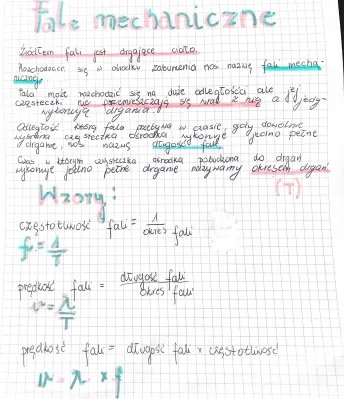 Fale mechaniczne
Źródłem fali jest drgające ciało.
Rozchodzące się w ośrodku zaburzenia nos nazwę fali mecha-
nicznej.
Fala może rozchodzić się na duże odległości ale jej
cząsteczki nie przemieszczają się wraz z nią a jedy-
wykonują drgania.
Odległość którą fala przebywa w czasie, gdy dowolnie
wybrana cząsteczka ośrodka wykonuje jedno pełne
drganie, nos nazwę długość fali.
Czas w którym cząsteczka ośrodka pobudzona do drgań
wykonuje jedno pełne drganie nazywamy okresem drgań.
(T)
Wzory:
częstotliwość fali = 1 / okres fali
f = 1 / T
prędkość fali = długość fali / okres fali
v = λ / T
prędkość fali = długość fali × częstotliwość
v = λ × f